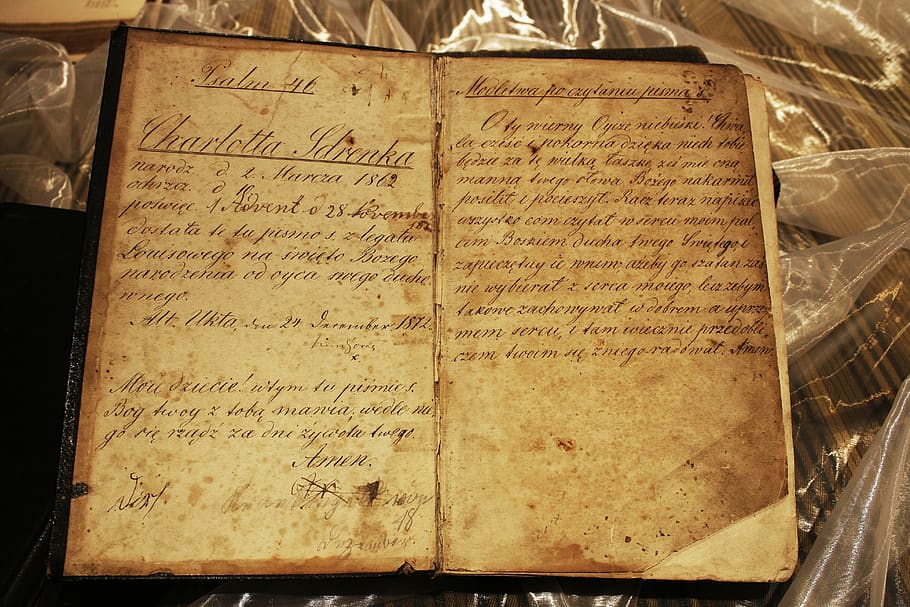 Psalm 46
Charlotta Sdrenka
narodz. d 2 Marcza 1862
ochrzcz. d
poświęc. 1 Advent d 28 November
dostała te tu pismo s. z legatu
Louisowego na święto Bożego
narodzenia od oyca swego ducho
wnego.
Alt. Ukta, den 24 December 1872.
Moie dziecie! wtym tu piśmie s.
Bog twoy z tobą mawia, wedle nie
go się rządź za dni żywota twego.
Amen.
18
Dezember.
Modlitwa po czytaniu pisma s.
O ty wierny Oycze niebieski! Chwa
ła cześć i pokorna dzięka niech tobie
będzie za tę wielką łaskę żeś mie oną
manną twego słowa Bożego nakarmił
posilił i pocieszył. Racz teraz napisać
wszystko com czytał w sercu moim pal
cem Boskiem ducha twego Swiętego, i
zapieczętuy ie wniem, ażeby go szatan zas
nie wybierał z serca moiego, lecz żebym
takowe zachowywał w dobrem a uprzy
mem sercu, i tam wiecznie przed obli
czem twoiem się zniego radował. Amen.